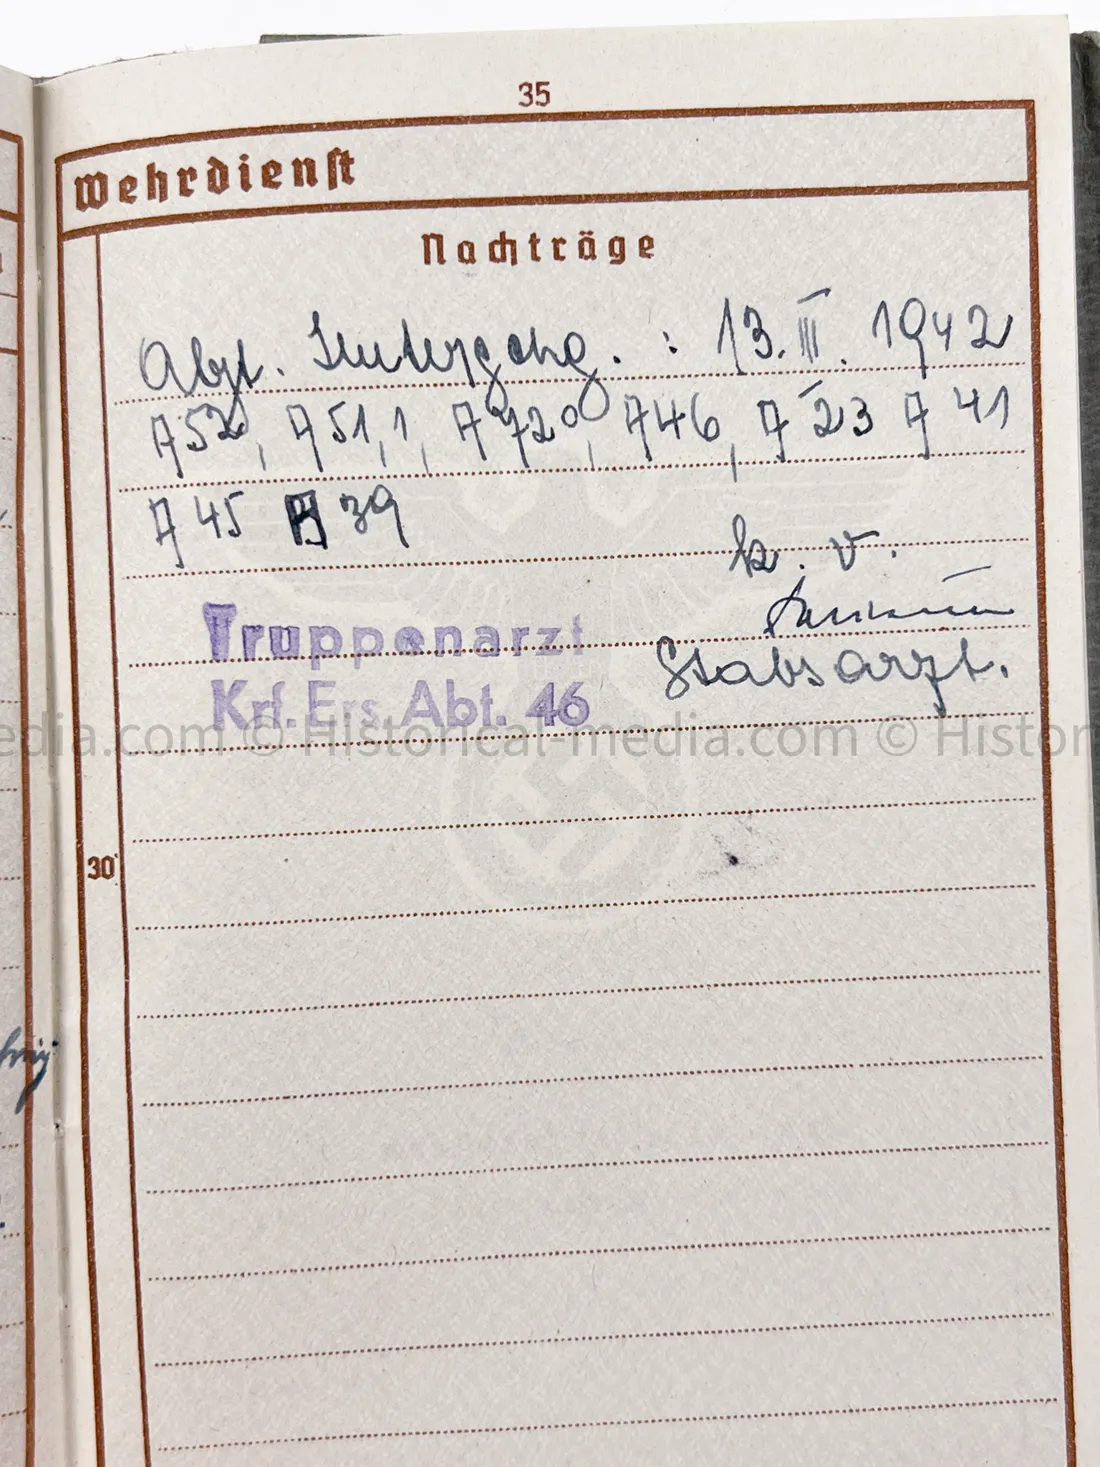 35
Wehrdienst
Nachträge
Abzt. Untersschg. : 13. III. 1942
A 52, A 51,1, A 720, A 46, A 23 A 41
A 45 A 39
k. v.
Truppenarzt
Stabsarzt.
Krf. Ers. Abt. 46
edia.com © Historical-media.com © Histor
30